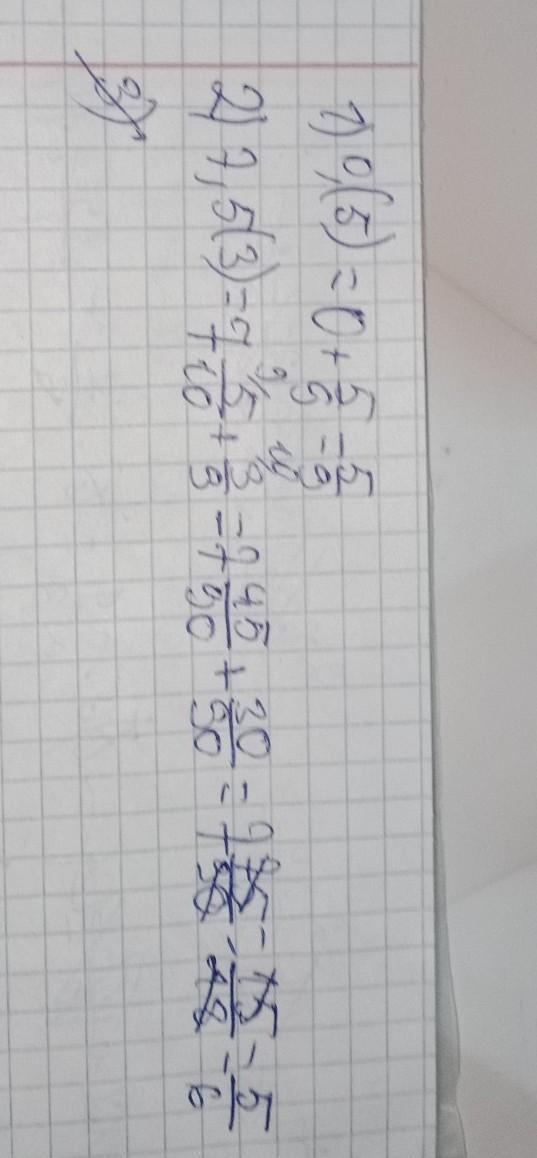 1) 0,(5) = 0 + 5/9 = 5/9
2) 7,5(3) = 7 5/10 + 3/9 = 7 45/90 + 30/90 = 7 75/90 = 15/18 = 5/6
3)